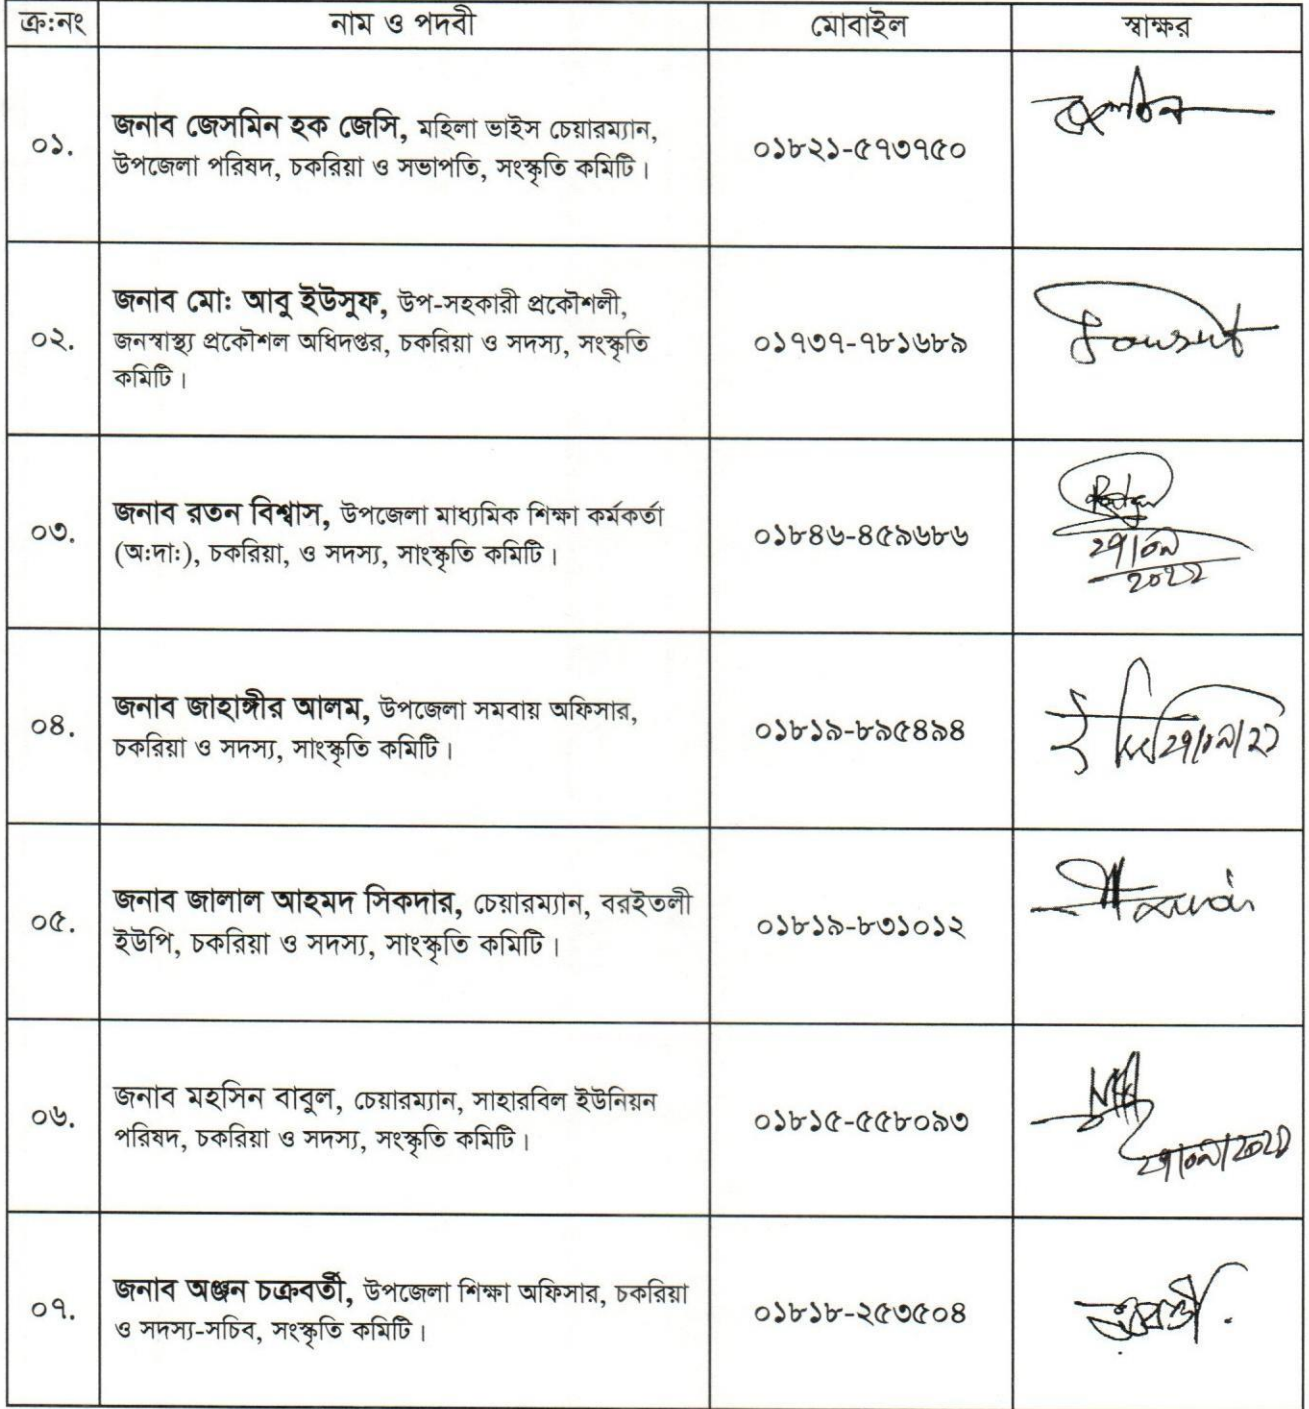 ক্র:নং নাম ও পদবী মোবাইল স্বাক্ষর
০১. জনাব জেসমিন হক জেসি, মহিলা ভাইস চেয়ারম্যান,
উপজেলা পরিষদ, চকরিয়া ও সভাপতি, সংস্কৃতি কমিটি। ০১৮২১-৫৭৩৭৫০
০২. জনাব মো: আবু ইউসুফ, উপ-সহকারী প্রকৌশলী,
জনস্বাস্থ্য প্রকৌশল অধিদপ্তর, চকরিয়া ও সদস্য, সংস্কৃতি
কমিটি। ০১৭৩৭-৭৮১৬৮৯
০৩. জনাব রতন বিশ্বাস, উপজেলা মাধ্যমিক শিক্ষা কর্মকর্তা
(অ:দা:), চকরিয়া, ও সদস্য, সাংস্কৃতি কমিটি। ০১৮৪৬-৪৫৯৬৮৬
২৭/০৯
২০২২
০৪. জনাব জাহাঙ্গীর আলম, উপজেলা সমবায় অফিসার,
চকরিয়া ও সদস্য, সাংস্কৃতি কমিটি। ০১৮১৯-৮৯৫৪৯৪
২৭/০৯/২২
০৫. জনাব জালাল আহমদ সিকদার, চেয়ারম্যান, বরইতলী
ইউপি, চকরিয়া ও সদস্য, সাংস্কৃতি কমিটি। ০১৮১৯-৮৩১০১২
০৬. জনাব মহসিন বাবুল, চেয়ারম্যান, সাহারবিল ইউনিয়ন
পরিষদ, চকরিয়া ও সদস্য, সংস্কৃতি কমিটি। ০১৮১৫-৫৫৮০৯৩
২৭/০৯/২০২২
০৭. জনাব অঞ্জন চক্রবর্তী, উপজেলা শিক্ষা অফিসার, চকরিয়া
ও সদস্য-সচিব, সংস্কৃতি কমিটি। ০১৮১৮-২৫৩৫০৪